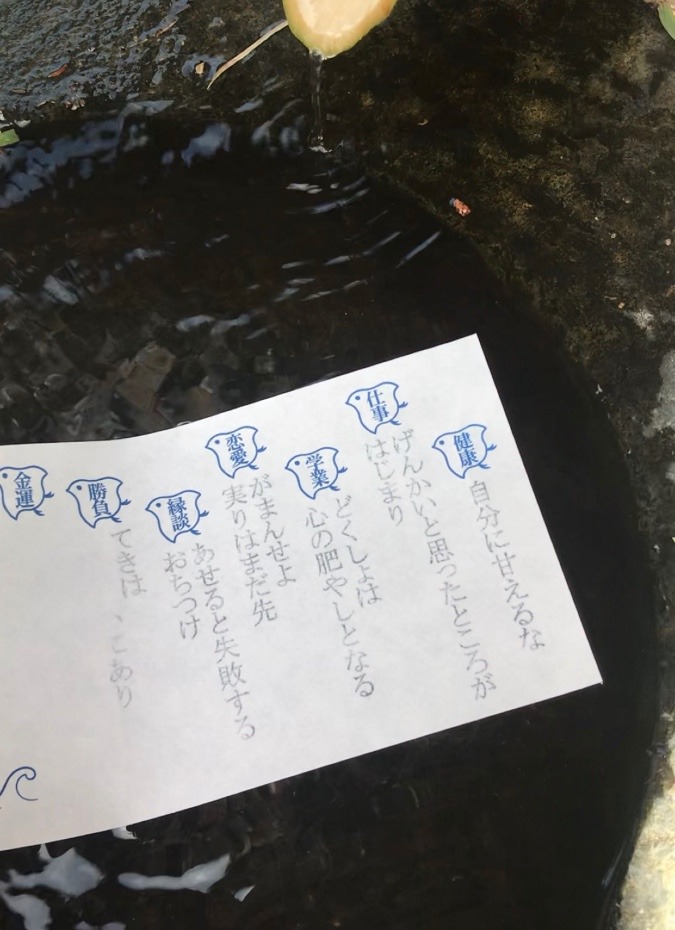 健康
自分に甘えるな
仕事
げんかいと思ったところが
はじまり
学業
どくしょは
心の肥やしとなる
恋愛
がまんせよ
実りはまだ先
縁談
あせると失敗する
おちつけ
勝負
てきは
こあり
金運